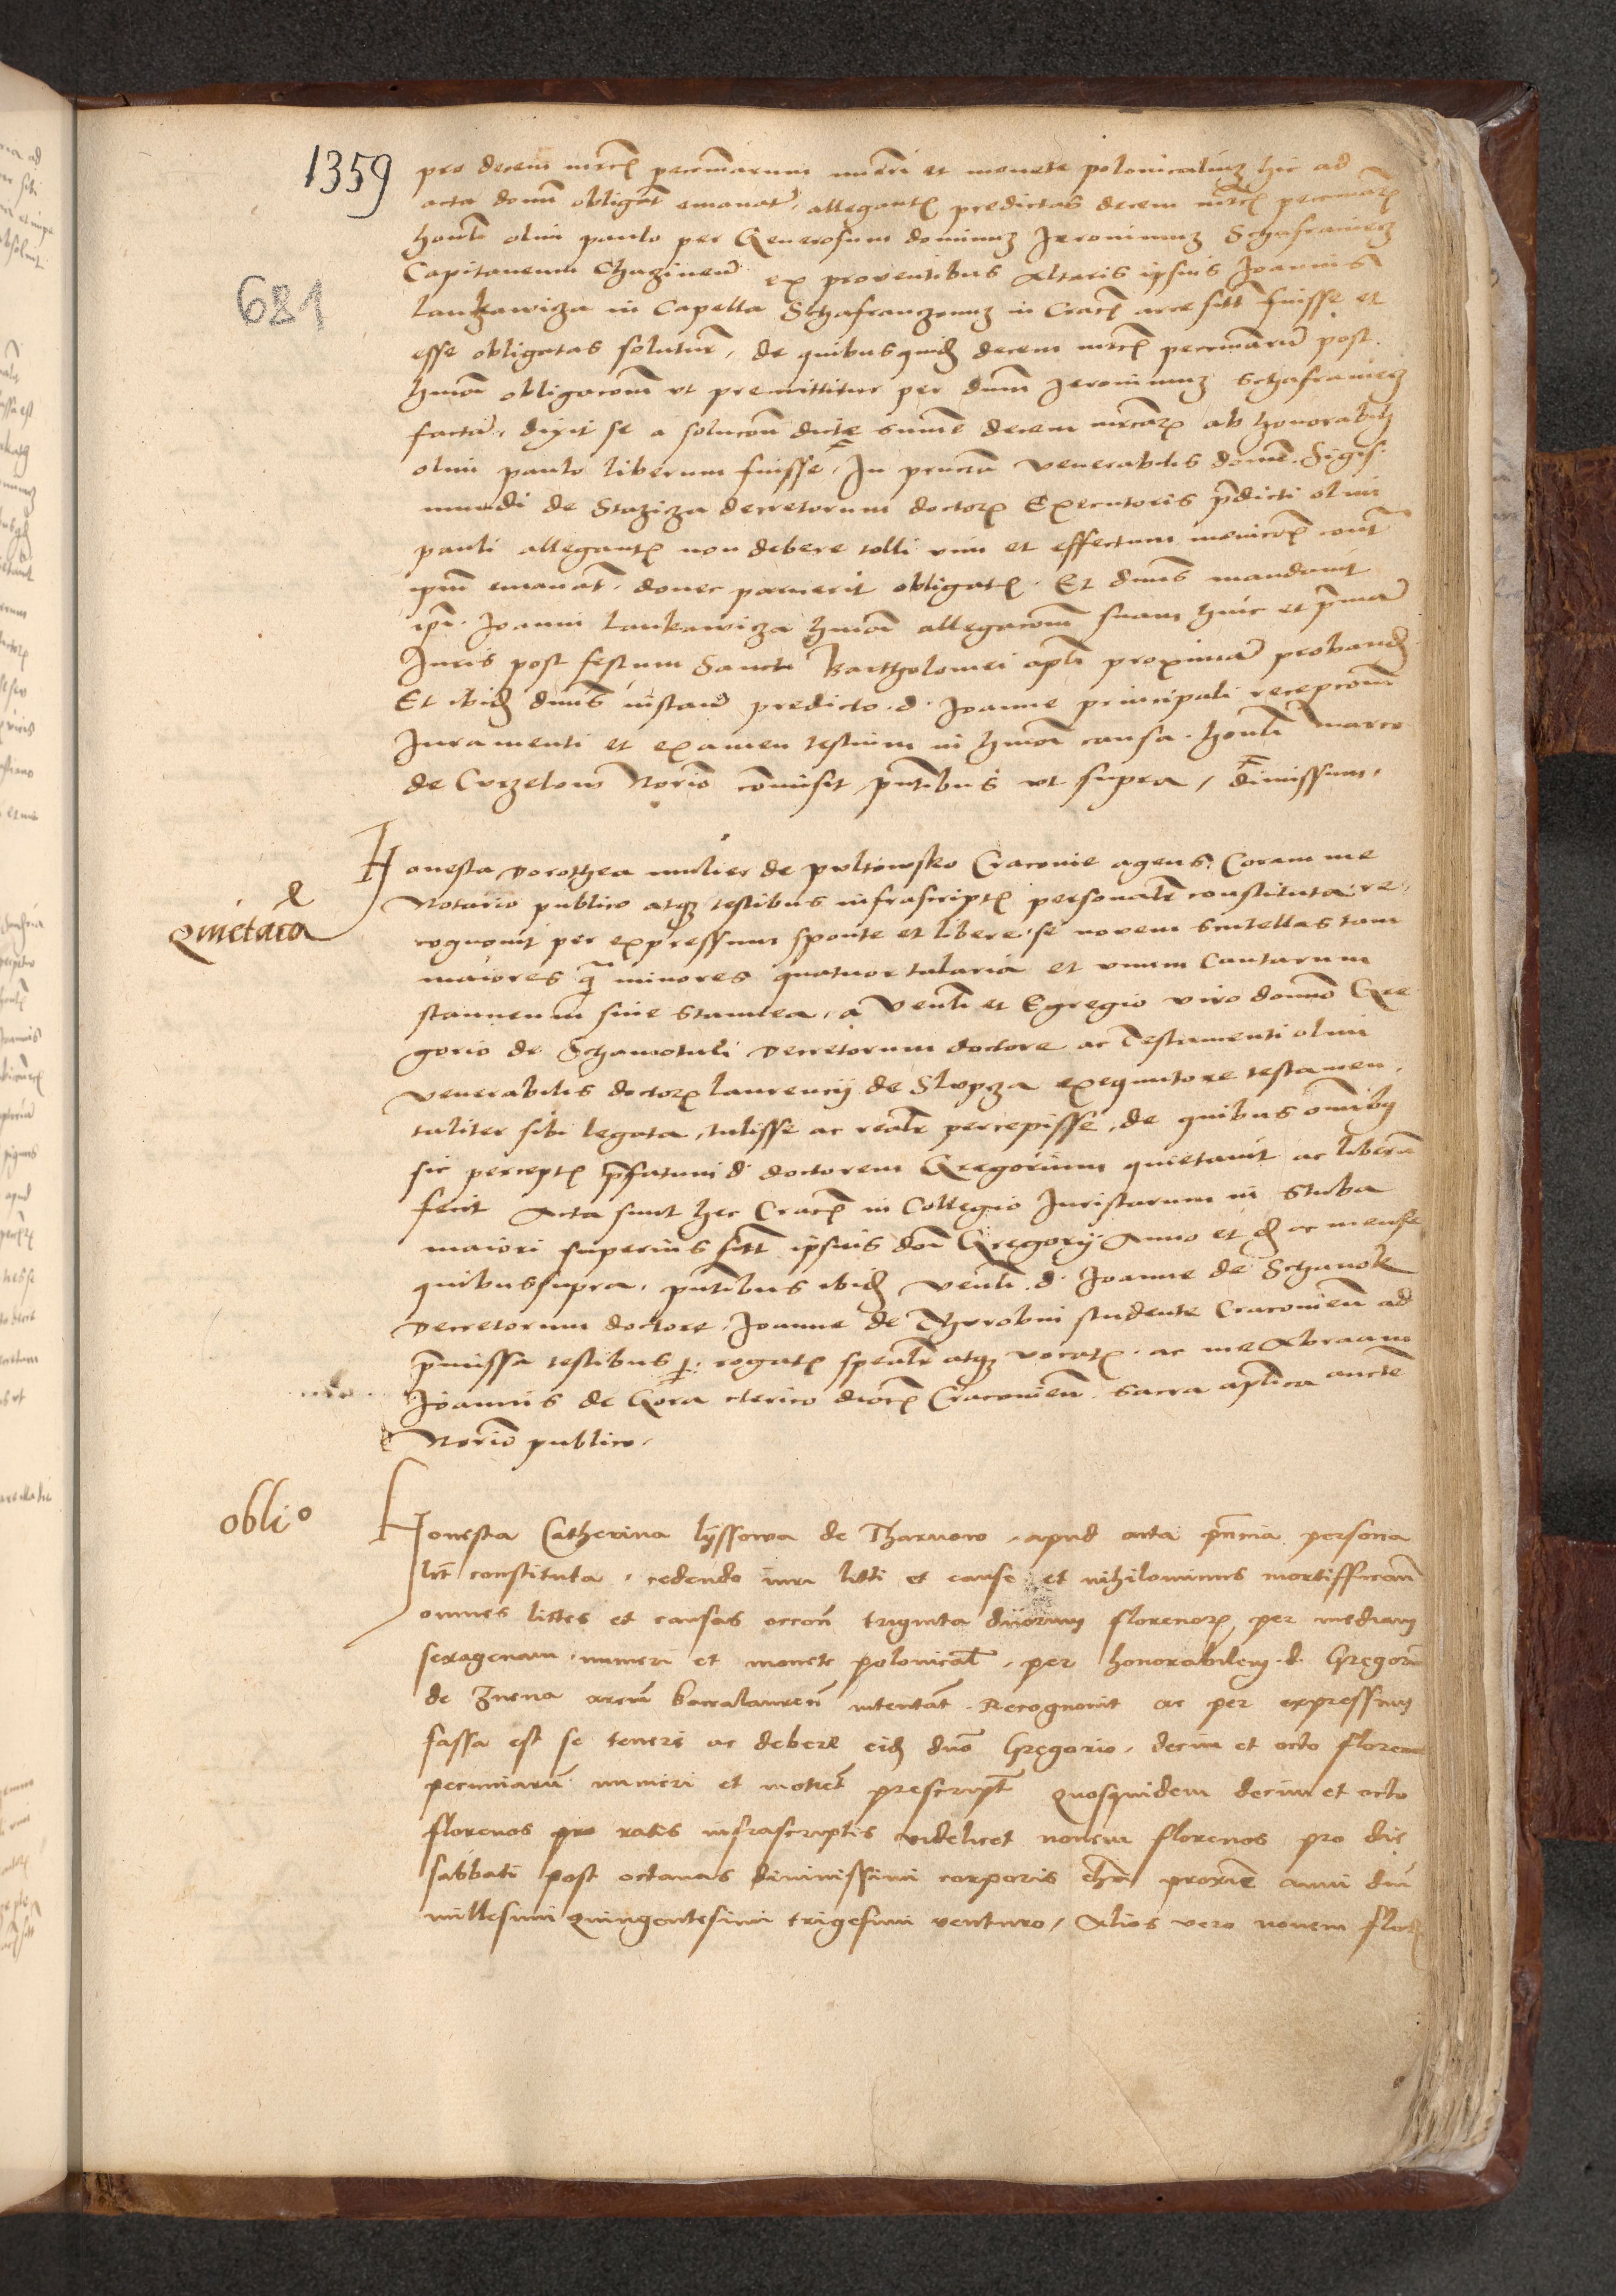 1359
681
pro decem mrcꝭ pecuniarum numeri et monete polonicaliuz hic ad
acta domi obligatͣ emanatͣ, allegantꝭ predictas decem mrcꝭ pecuniarꝭ
honli olim paulo per Generosum dominuz Jeronimuz Schafraniecz
Capitaneum Chaczinenͣ ex proventibus Altaris ipsius Joannis
Lankawicza in Capella Schafranczonuz in Cracꝭ arce sitͣ fuisse et
esse obligatas solutuͣ, de quibusquidꝫ decem mrcꝭ pecuniarū post
hmoi obligacom̄ ut premittitur per dnm̄ Jeronimuz Schafraniecz
factaͣ, dixit se a solucoē dicte summe decem mrcarꝭ ab honorabili
olim paulo liberum fuisse, In pn̄cia venerabilis domi Sigis:
mundi de Staziza decretorum doctorꝭ Executoris p̄dicti olim
pauli allegantꝭ non debere tolli vim et effectum contͣ
ipm̄ emanatͣ, donec paruerit obligatꝭ. Et dnus mandavit
ipi Joanni Lankawicza hmoi allegacom̄ suam hinc et p̄maͣ
Juris post festum Sancti Barttholomei apli proximaͣ proband
Et ibidꝫ dnus instanͣ predicto d. Joanne principali recepcom̄
Juramenti et examen testium in hmoi causa honli marco
de Curzelow Norio comisit pn̄tibus ut supra, dimissum,
Quietaco
Honesta Dorothea mulier de pultowsko Cracovie agens Coram me
Notario publico atqꝫ testibus infrascriptꝭ personalr constituta re,
cognovit per expressum sponte et libere se novem scutellas tam
maiores qͣ minores quatuor talaria et unum Cantarum
stanneum sive stannea, a Venli et Egregio viro domno Gre
gorio de Schamotuli Decretorum doctore ac Testamenti olim
venerabilis doctorꝭ Laurencij de Slupcza exequutore testamen,
taliter sibi legata, tulisse ac realr percepisse, de quibus omibꝫ
sic perceptꝭ p̄fatum d. doctorem Gregorium quietavit ac liberū
fecit Acta sunt hec Cracꝭ in Collegio Juristarum in Stuba
maiori superius sitͣ ipsius doi Gregorij Anno et d ac mense
quibussupra, pn̄tibus ibidꝫ Venli d. Joanne de Schanok
Decretorum doctore, Joanne de Thurobin studente Cracovienͣ ad
p̄missa testibus rogatꝭ spealr atqꝫ vocatꝭ. ac me Abraam
Joannis de Gora clerico diocꝭ Cracovienͣ sacra aplica aucte
Norio publico.
Oblio
Honesta Catherina Lyssowa de Tharnow, apud acta pn̄cia persona
lrt constituta, cedendo iuri litti et cause et nihilominus mortifficanͣ
omnes littes et causas occoē triginta duorum florenorꝭ per mediam
sexagenam numeri et monete polonicalͣ, per honorabilem d Gregoriū
de Znena arcium baccalaureū intentatͣ. Recognovit ac per expressum
fassa est se teneri ac debere eidꝫ dno Gregorio, decim et octo floren
pecuniarū numeri et monetͣ prescriptͣ Quosquidem decim et octo
florenos pro ratis infrascriptis videlicet novem florenos pro die
sabbati post octavas divinissimi corporis chri proxie anni dni
millesimi Quingentesimi trigesimi venturo, Alios vero novem florꝭ